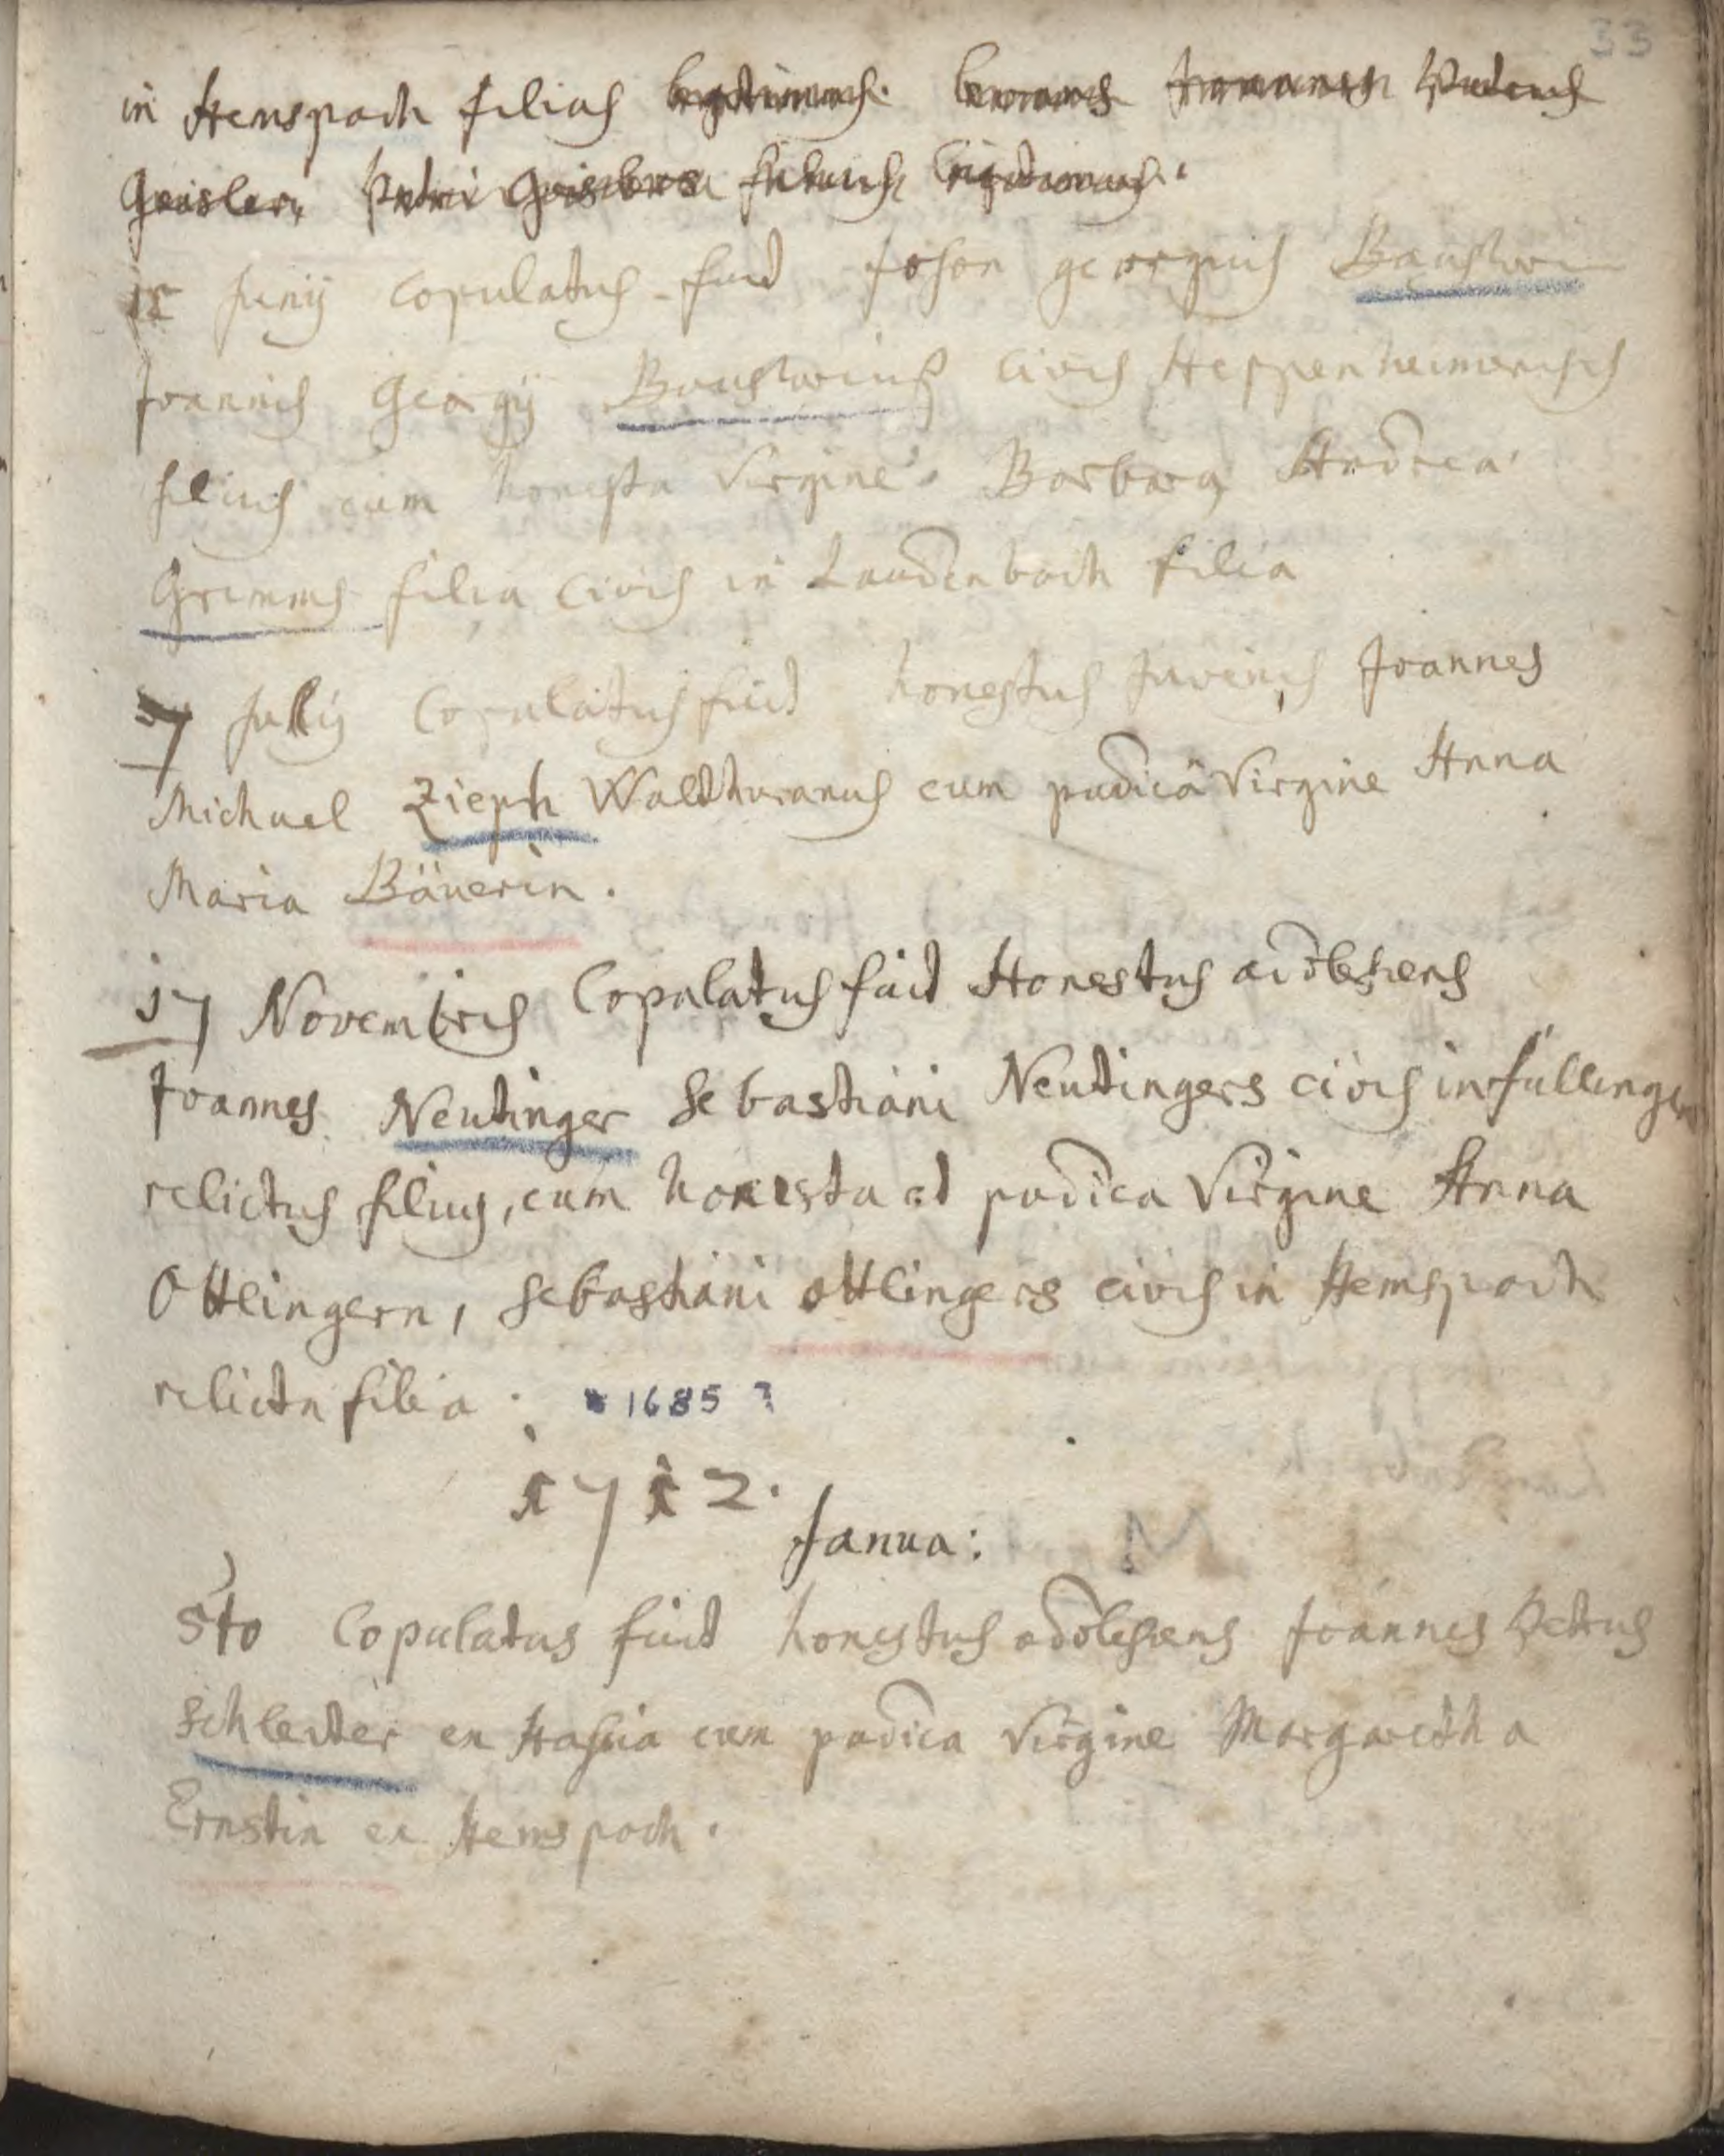 33
in Hemspach filius legitimus. Petrus
Geisler, Petri Geislers filius legitimus.
Junij Copulatus fuit Johan georgius Bauswein
Joannis Georgij Bausweins civis Heppenheimensis
filius cum honesta Virgine Barbara Andreae
Grimms filia civis in Laudenbach filia
7 Julij Copulatus fuit honestus Juvenis Joannes
Michael Zieph Waldthuranus cum pudica Virgine Anna
Maria Bäuerin.
17 Novembris Copulatus fuit Honestus adolescens
Joannes Neutinger Sebastiani Neutingers civis in fullingen
relictus filius, cum honesta et pudica Virgine Anna
Ottlingern, Sebastiani Ottlingers civis in Hemspach
relicta filia. * 1685 ?
1712.
Janua:
5to Copulatus fuit honestus adolescens Joannes Petrus
Schleider ex Hassia cum pudica Virgine Margaretha
Ernstin ex Hemspach.